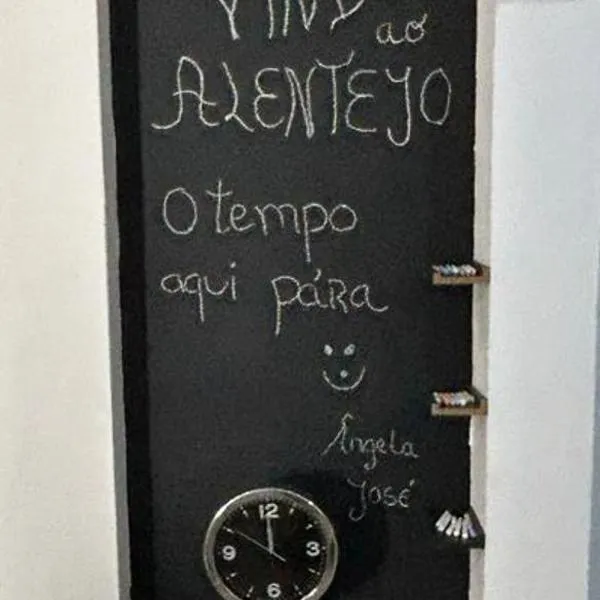 VIND
ao
ALENTEJO
O tempo
aqui pára
Ângela
José
12
9 3
6